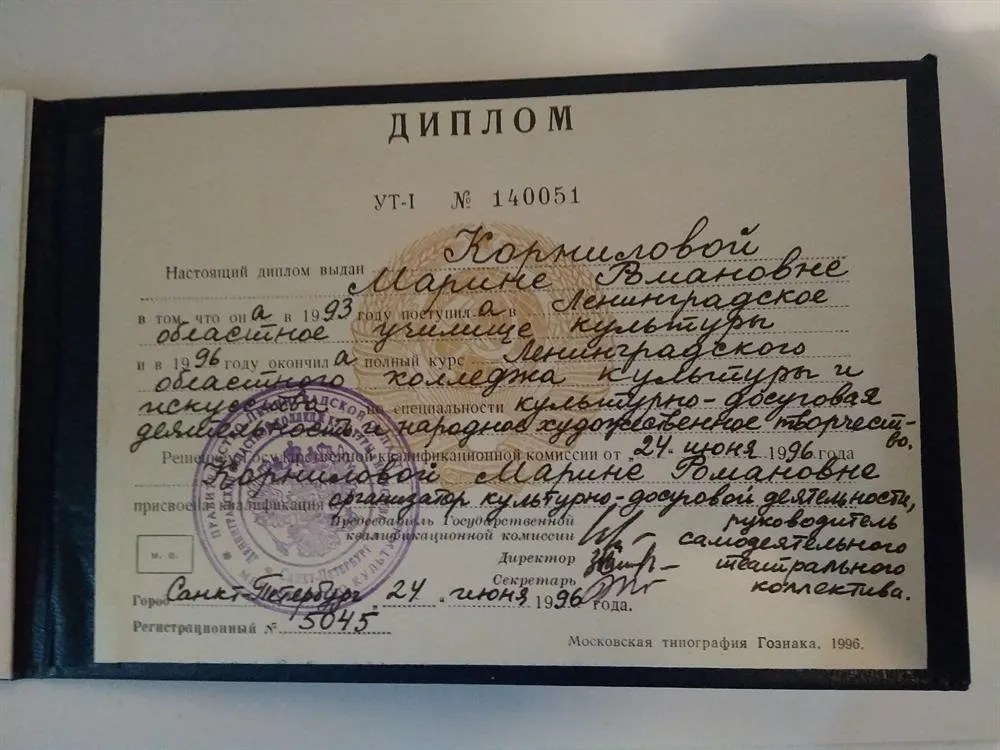 ДИПЛОМ
УТ-I № 140051
Настоящий диплом выдан Корниловой
Марине Романовне
в том что он а в 1993 году поступил а в Ленинградское
областное училище культуры
и в 1996 году окончил а полный курс Ленинградского
областного колледжа культуры и
искусства по специальности культурно-досуговая
деятельность и народное художественное творчество.
Решением Государственной квалификационной комиссии от „24 июня 1996 года
Корниловой Марине Романовне
присвоена квалификация организатор культурно-досуговой деятельности,
Председатель Государственной
квалификационной комиссии
руководитель
самодеятельного
театрального
коллектива.
Директор
Секретарь
м. п.
Город Санкт-Петербург „24 " июня 1996 года.
Регистрационный № 5045
Московская типография Гознака. 1996.
САНКТ-ПЕТЕРБУРГ